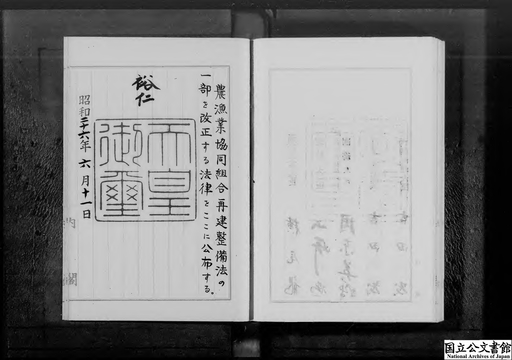 農漁業協同組合再建整備法の
一部を改正する法律をここに公布する。
裕仁
天皇御璽
昭和二十六年六月十一日
内閣
国立公文書館
National Archives of Japan